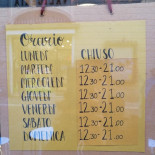 Orario
CHIUSO
LUNEDÌ 12.30-21.00
MARTEDÌ 12.30-21.00
MERCOLEDÌ 12.30-21.00
GIOVEDÌ 12.30-21.00
VENERDÌ 12.30-21.00
SABATO 12.30-21.00
DOMENICA 12.30-21.00